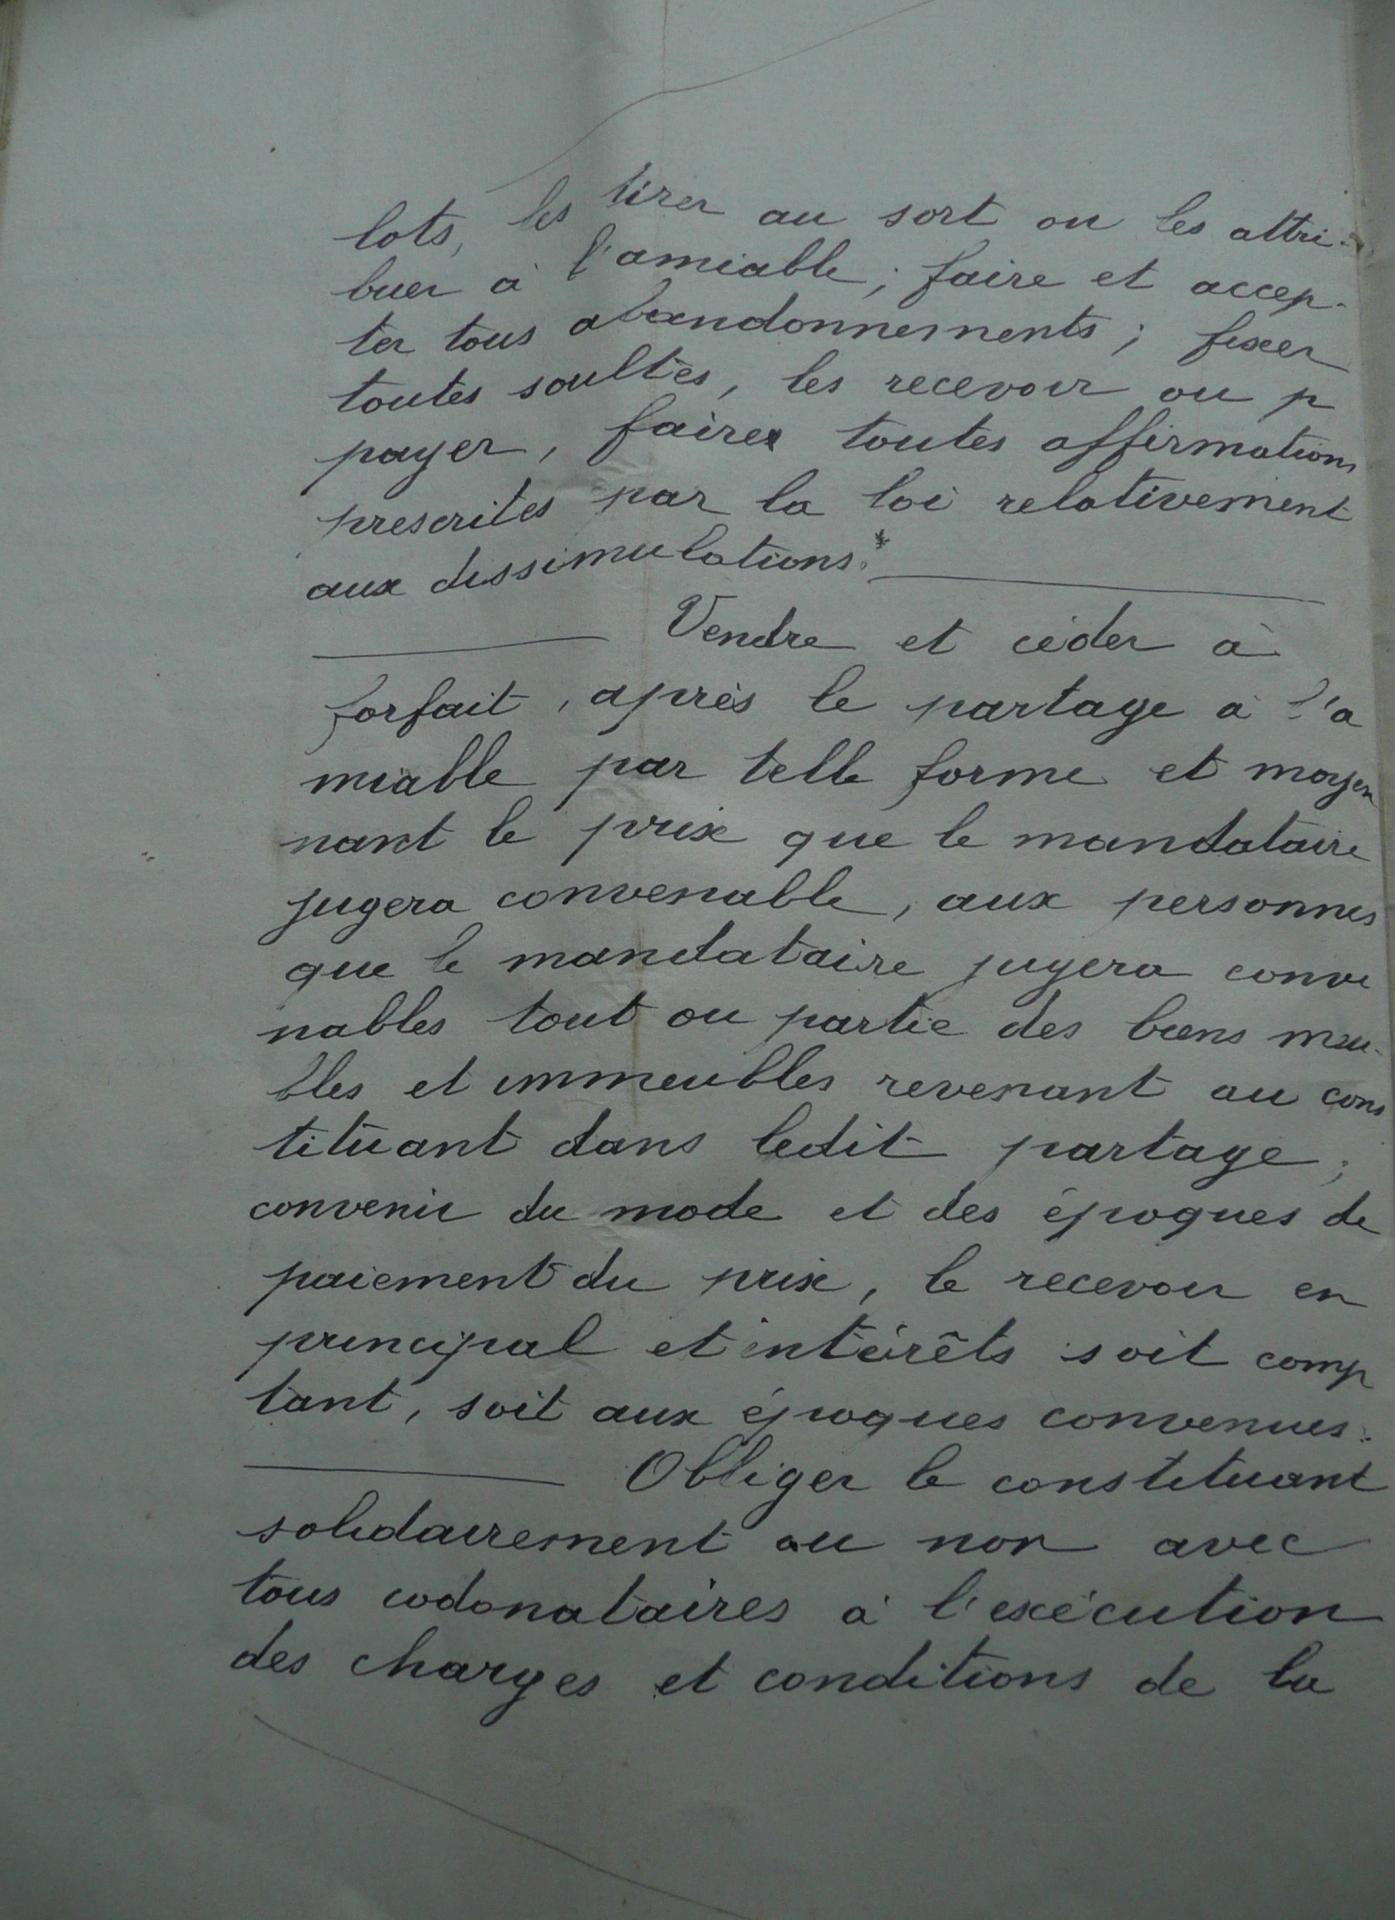 lots, les tirer au sort ou les attri-
buer à l'amiable ; faire et accep-
ter tous abandonnements ; fixer
toutes soultes, les recevoir ou p
payer, faire toutes affirmations
prescrites par la loi relativement
aux dissimulations.*
Vendre et céder à
forfait, après le partage à l'a
miable par telle forme et moyen
nant le prix que le mandataire
jugera convenable, aux personnes
que le mandataire jugera conve
nables tout ou partie des biens meu-
bles et immeubles revenant au cons
tituant dans ledit partage ;
convenir du mode et des époques de
paiement du prix, le recevoir en
principal et intérêts soit comp
tant, soit aux époques convenues.
Obliger le constituant
solidairement ou non avec
tous codonataires à l'exécution
des charges et conditions de la